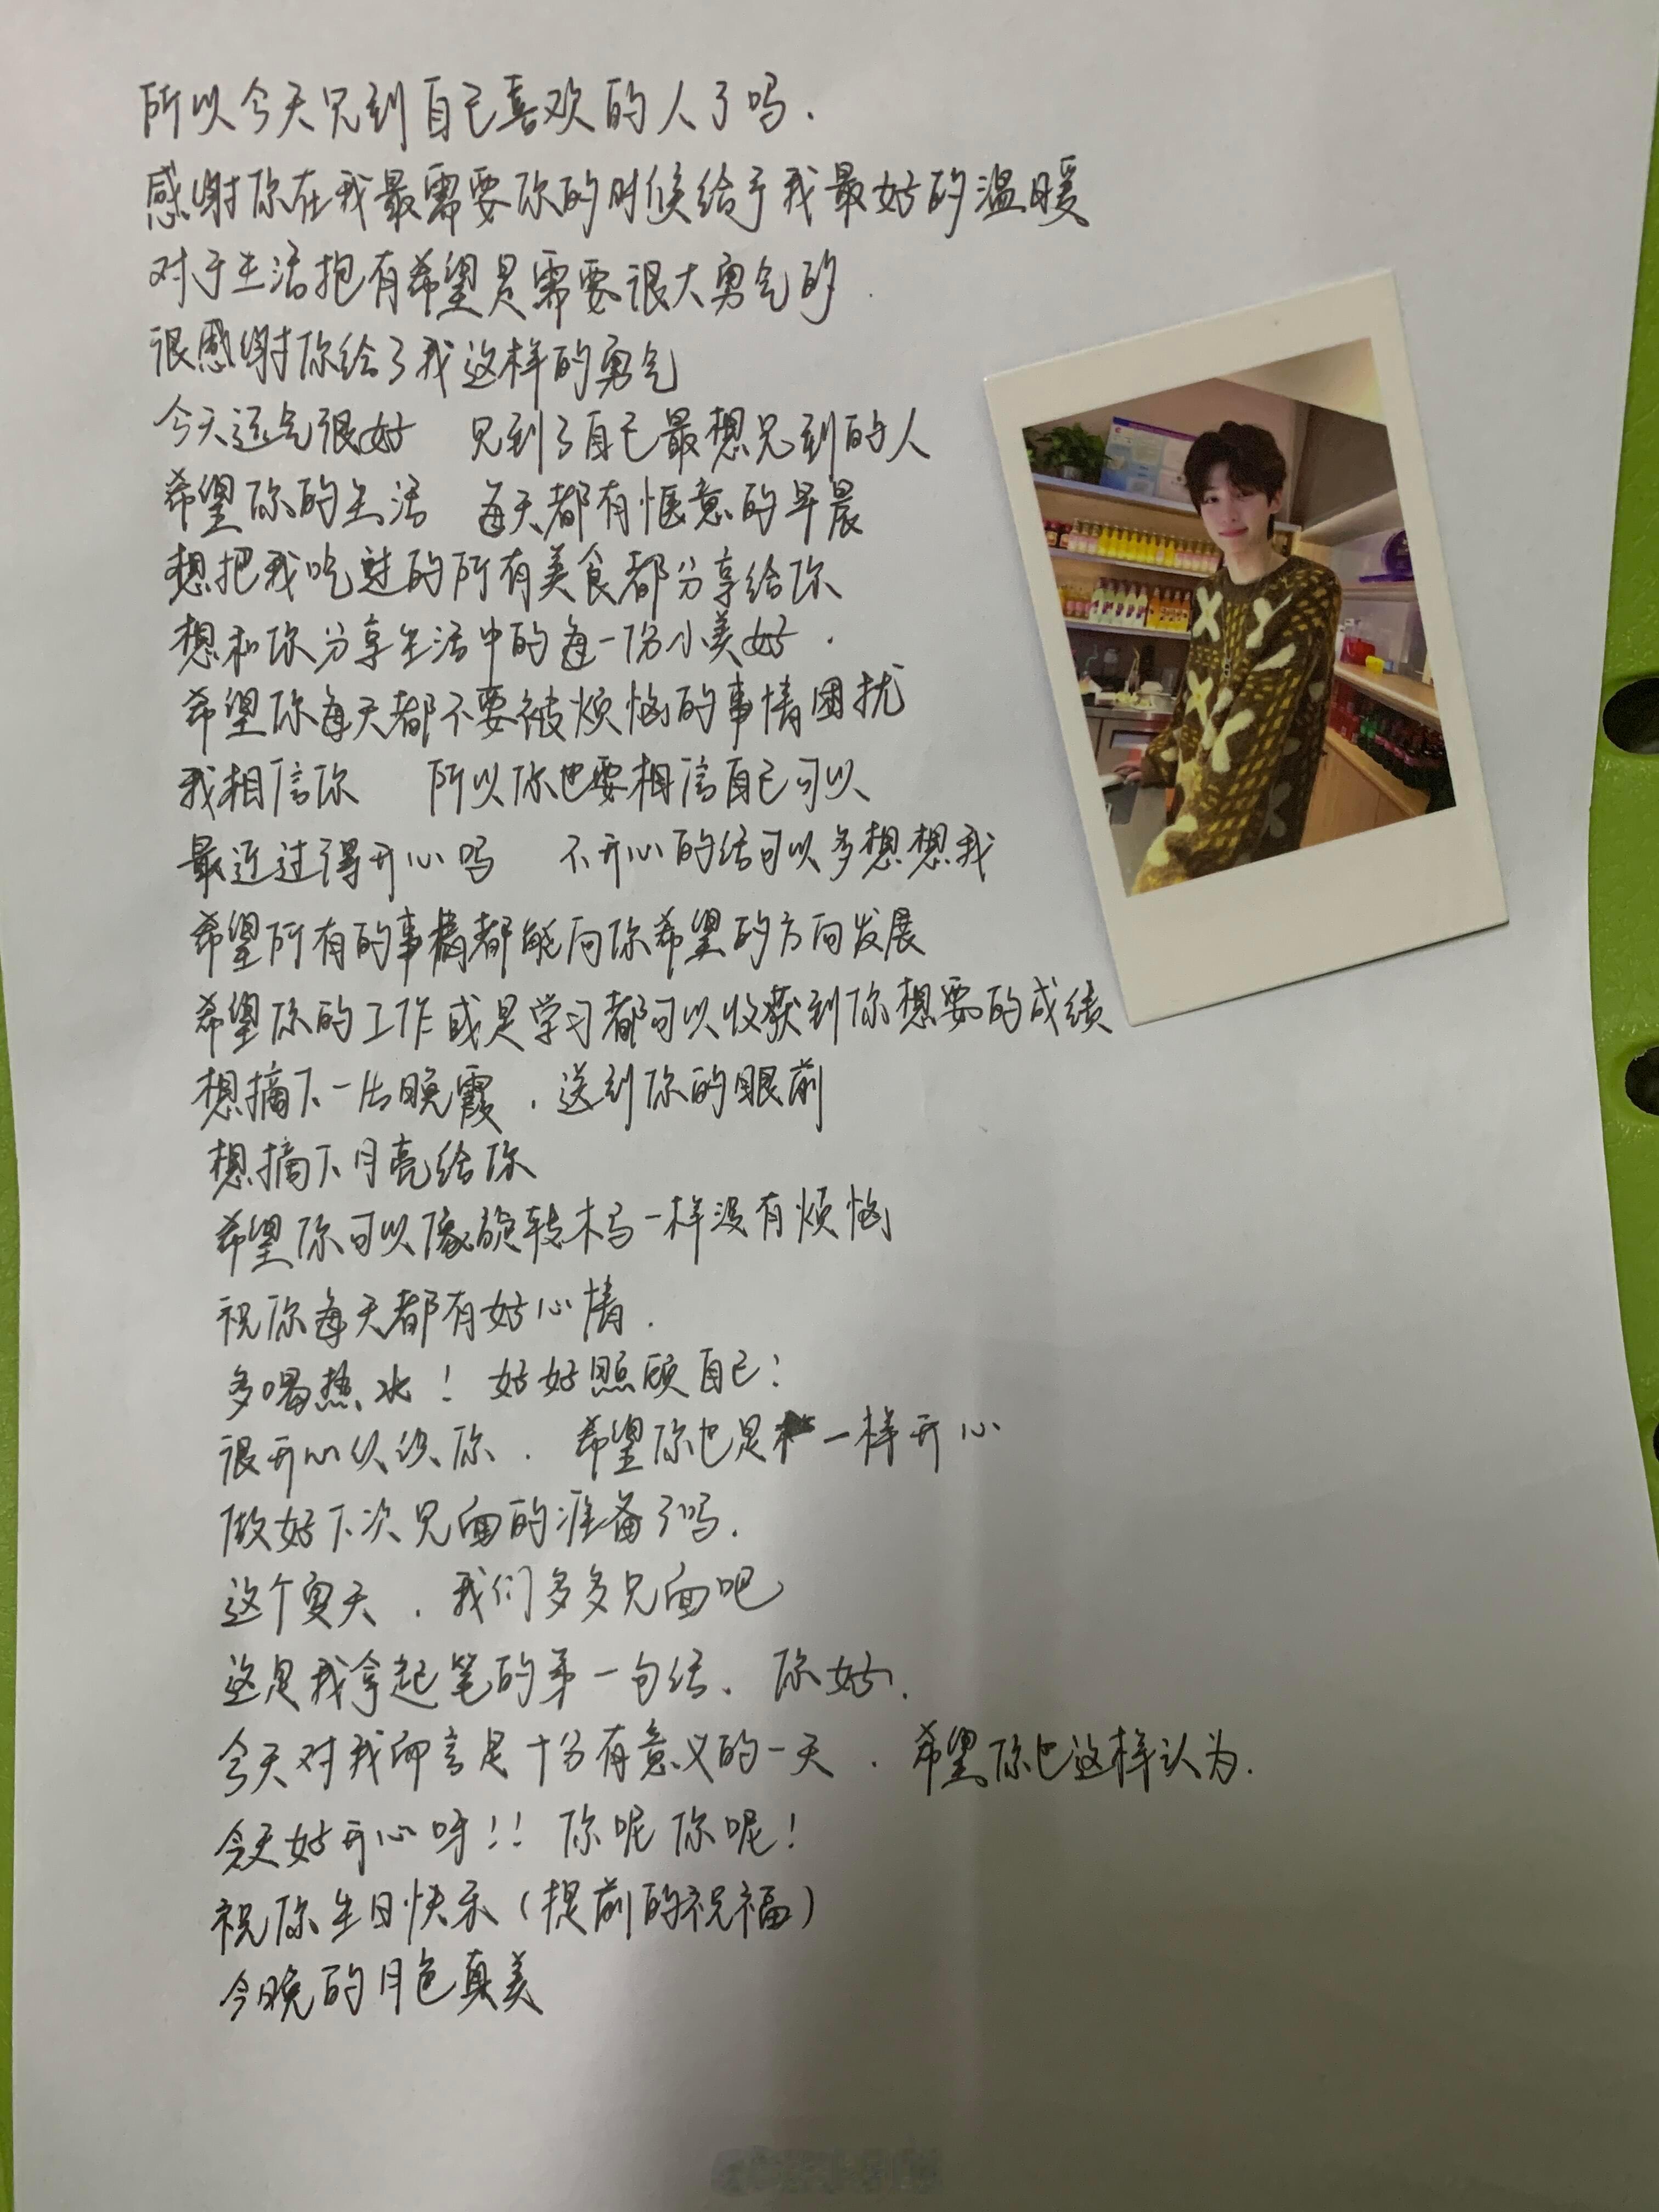 所以今天见到自己喜欢的人了吗.
感谢你在我最需要你的时候给予我最好的温暖
对于生活抱有希望是需要很大勇气的.
很感谢你给了我这样的勇气
今天运气很好 见到了自己最想见到的人
希望你的生活 每天都有惬意的早晨
想把我吃过的所有美食都分享给你
想和你分享生活中的每一份小美好.
希望你每天都不要被烦恼的事情困扰
我相信你 所以你也要相信自己可以
最近过得开心吗 不开心的话可以多想想我
希望所有的事情都能向你希望的方向发展
希望你的工作或是学习都可以收获到你想要的成绩
想摘下一片晚霞.送到你的眼前
想摘下月亮给你
希望你可以像旋转木马一样没有烦恼
祝你每天都有好心情.
多喝热水!好好照顾自己!
很开心认识你.希望你也是一样开心
做好下次见面的准备了吗.
这个夏天.我们多多见面吧
这是我拿起笔的第一句话.你好.
今天对我而言是十分有意义的一天.希望你也这样认为.
今天好开心呀!!你呢你呢!
祝你生日快乐(提前的祝福)
今晚的月色真美